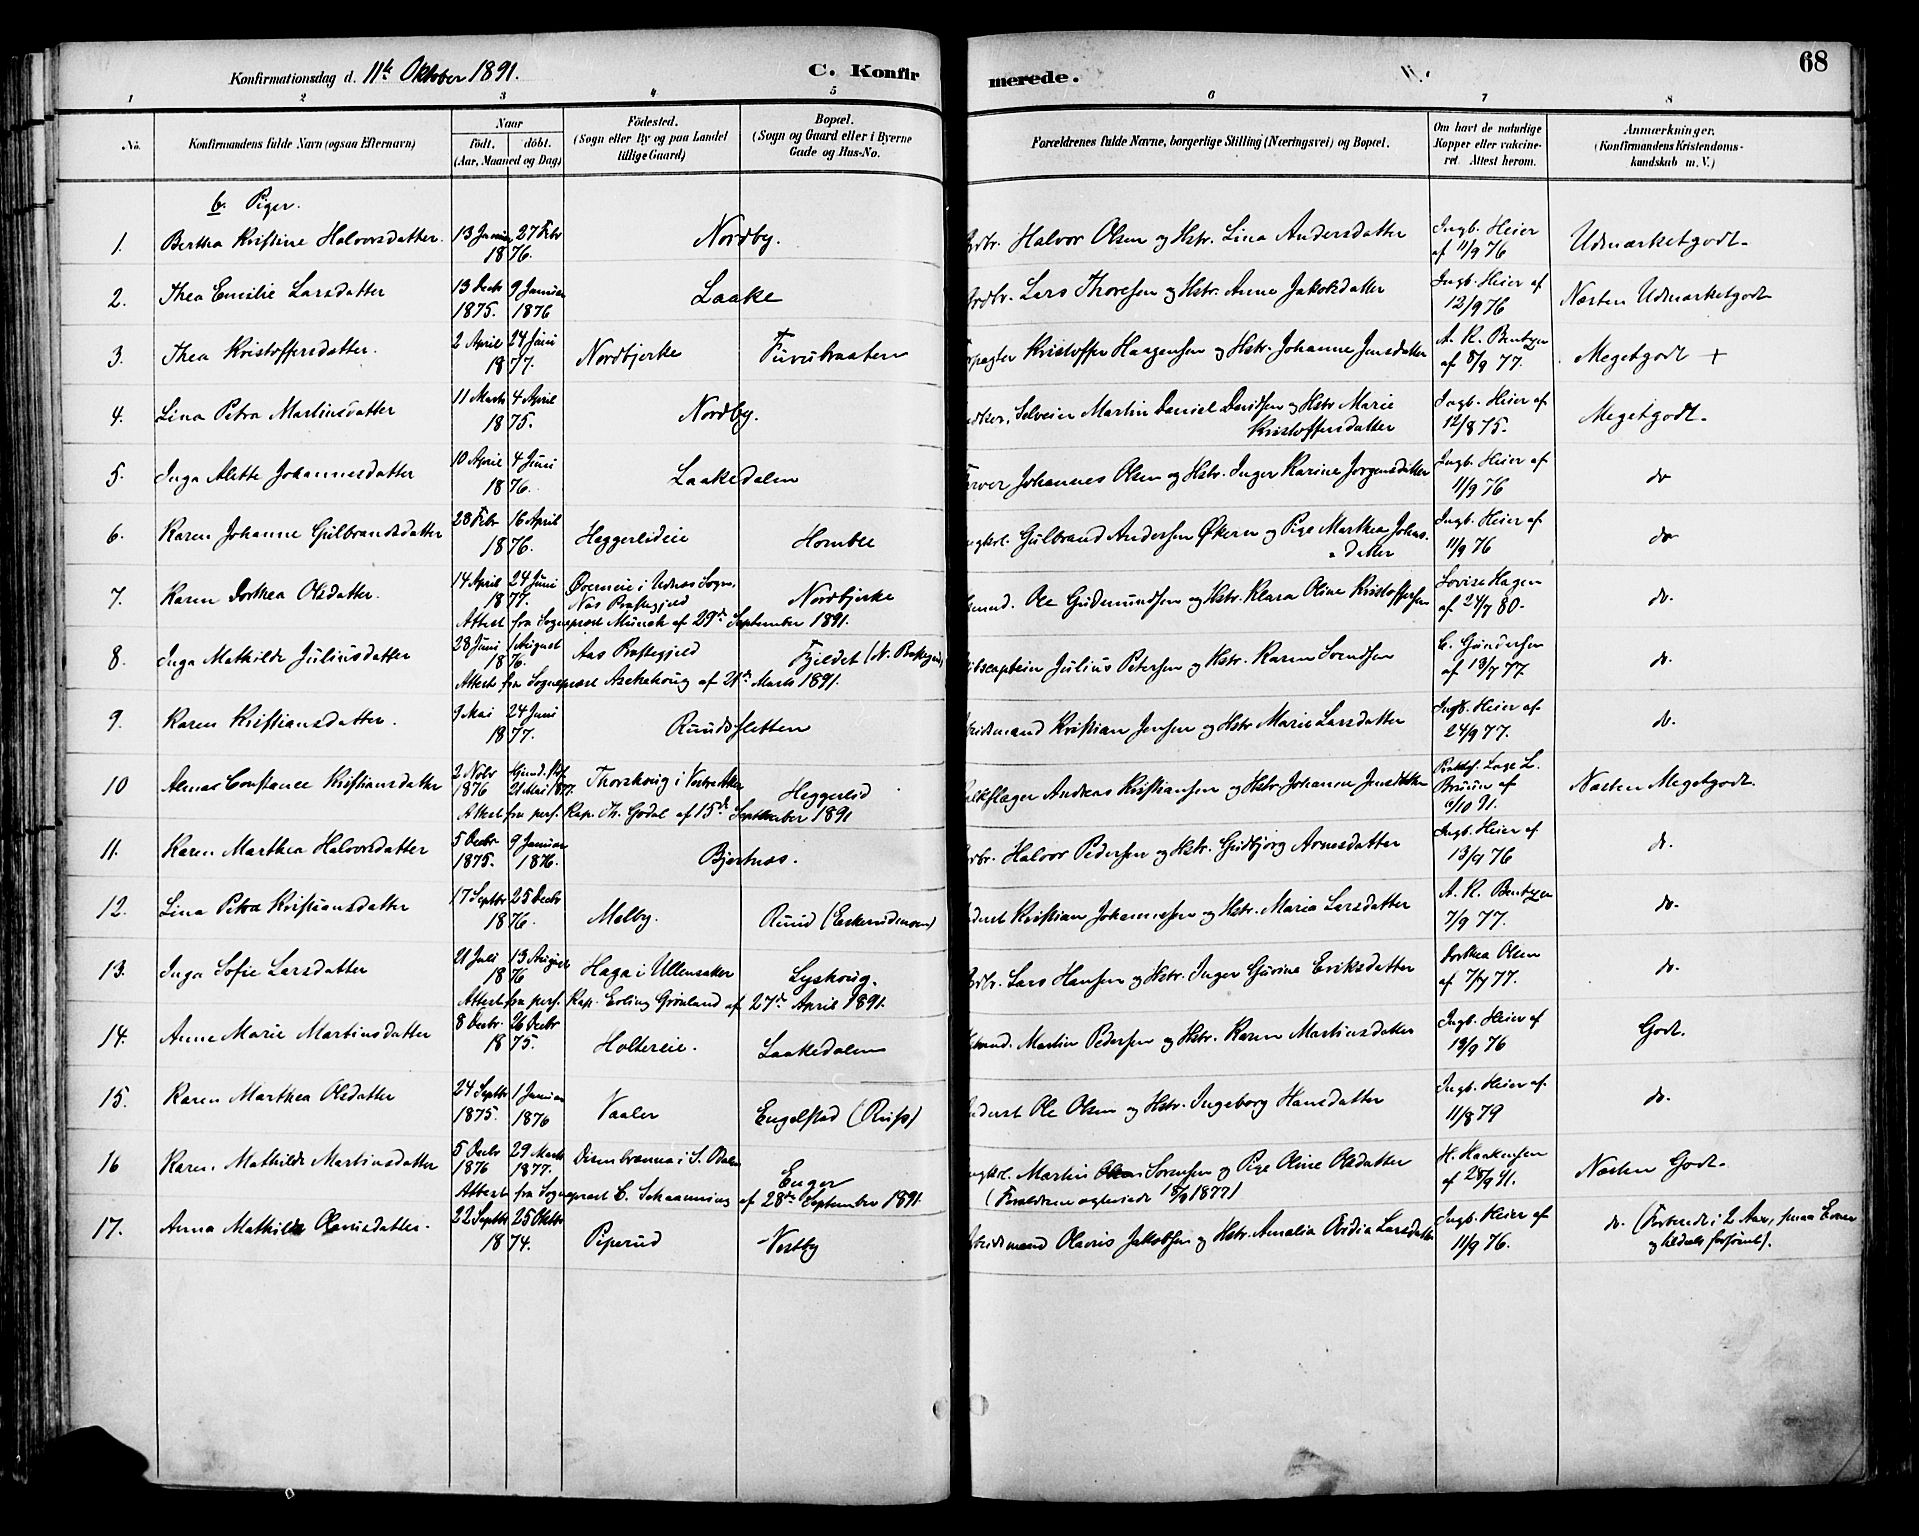 68
Konfirmationsdag d. 11te Oktober 1891. C. Konfirmerede.
1 2 3 4 5 6 7 8
No. Konfirmandens fulde Navn (ogsaa Efternavn) Naar født. døbt. (Aar, Maaned og Dag) Fødested. (Sogn eller By og paa Landet tillige Gaard) Bopæl. (Sogn og Gaard eller i Byerne Gade og Hus-No. Forældrenes fulde Navne, borgerlige Stilling (Næringsvei) og Bopæl. Om havt de naturlige Kopper eller vakcineret. Attest herom. Anmærkninger. (Konfirmandens Kristendomskundskab m. V.)
b. Piger.
1. Bertha Kristine Halvorsdatter. 13 Januar 27 Febr 1876. Nordby. Halvor Olsen og Hstr. Lina Andersdatter Ingb. Heier af 11/9 76 Udmærketgodt.
2. Thea Emilie Larsdatter 13 Decb 1875. 9 Januar 1876 Laake Lars Thoresen og Hstr. Anne Jakobsdatter Ingb. Heier af 12/9 76 Næsten Udmærketgodt
3. Thea Kristoffersdatter. 2 April 24 Juni 1877. Nordbjerke Furubraaten Kristoffer Haagensen og Hstr. Johanne Jensdatter A. K. Bentzen af 8/9 77. Megetgodt +
4. Lina Petra Martinsdatter 11 Marts 4 April 1875. Nordby. Selveier Martin Daniel Davidsen og Hstr Marie Kristoffersdatter Ingb. Heier af 12/8 75. Megetgodt.
5. Inga Alette Johannesdatter 10 April 4 Juni 1876. Laakedalen Johannes Olsen og Hstr. Inger Karine Jørgensdatter Ingb. Heier af 11/9 76 do
6. Karen Johanne Gulbrandsdatter 28 Febr 16 April 1876. Heggerlideie Homble Gulbrand Andersen Økern og Pige Marthea Johnsdatter Ingb. Heier af 11/9 76 do
7. Karen Dorthea Olsdatter. 14 April 24 Juni 1877. Øverneie i Udnæs Sogn, Næs Præstegjeld Nordbjerke Ole Gudmundsen og Hstr. Klara Oline Kristoffersen Lovise Hagen af 24/7 80. do.
Attest fra Sognepræst Munch af 29de September 1891.
8. Inga Mathilde Juliusdatter 28 Juni 1 August 1876. Aas Præstegjeld Fjeldet Julius Petersen og Hstr. Karen Svendsen C. Gundersen af 13/7 77 do.
Attest fra Sognepræst Aschehoug af 21de Marts 1891.
9. Karen Kristiansdatter. 9 Mai 24 Juni 1877. Ruudsletten Kristian Jensen og Hstr. Marie Larsdatter Ingb. Heier af 24/9 77. do.
10 Agnes Constance Kristiansdatter 2 Novbr 1876 21 Mai 1877. Thorshoug i Vestre Aker Heggerlid Andreas Kristiansen og Hstr Johanne Jensdatter 6/10 91. Næsten Megetgodt.
Attest fra pers. Kap. Th. Godal af 15de September 1891
11. Karen Marthea Halvorsdatter 5 Decbr 1875. 9 Januar 1876. Bjertnæs. Halvor Pedersen og Hstr. Gudbjørg Arnesdatter Ingb. Heier af 13/9 76 do.
12. Lina Petra Kristiansdatter 17 Septbr 25 Decbr 1876. Molby. Ruud (Eskerudmoen) Kristian Johannessen og Hstr. Maria Larsdatter A. K. Bentzen 7/9 77. do.
13. Inga Sofie Larsdatter 21 Juli 13 August 1876 Haga i Ullensaker Lyshoug. Lars Hansen og Hstr. Inger Gurine Eriksdatter Dorthea Olsen af 7/7 77. do.
Attest fra pers. Kap. Erling Grønland af 27de April 1891.
14. Anne Marie Martinsdatter 8 Decbr. 26 Decbr 1875. Holtereie. Laakedalen Martin Pedersen og Hstr. Karen Martinsdatter Ingb. Heier af 19/9 76 Godt.
15. Karen Marthea Olsdatter 24 Septbr 1875. 1 Januar 1876 Vaaler Engelstad Ole Olsen og Hstr. Ingeborg Hansdatter Ingb. Heier af 11/8 79 do.
16 Karen Mathilde Martinsdatter 5 Decbr 1876 29 Marts 1877. Disenbrænna i S. Odalen Enger Martin Sørensen og Pige Oline Olsdatter H. Haakensen af 28/9 91. Næsten Godt.
(Forældrene ægteviede 18/9 1877)
Attest fra Sognepræst C. Schaanning af 28de September 1891.
17. Anna Mathilde Olausdatter. 22 Septbr 25 Oktbr 1874. Piperud Vestby Olavus Jakobsen og Hstr. Amalia Ovidia Larsdatter Ingb. Heier af 11/9 76. do. (Forberedt i 2 Aar, smaa Evner og tildels forsømt).